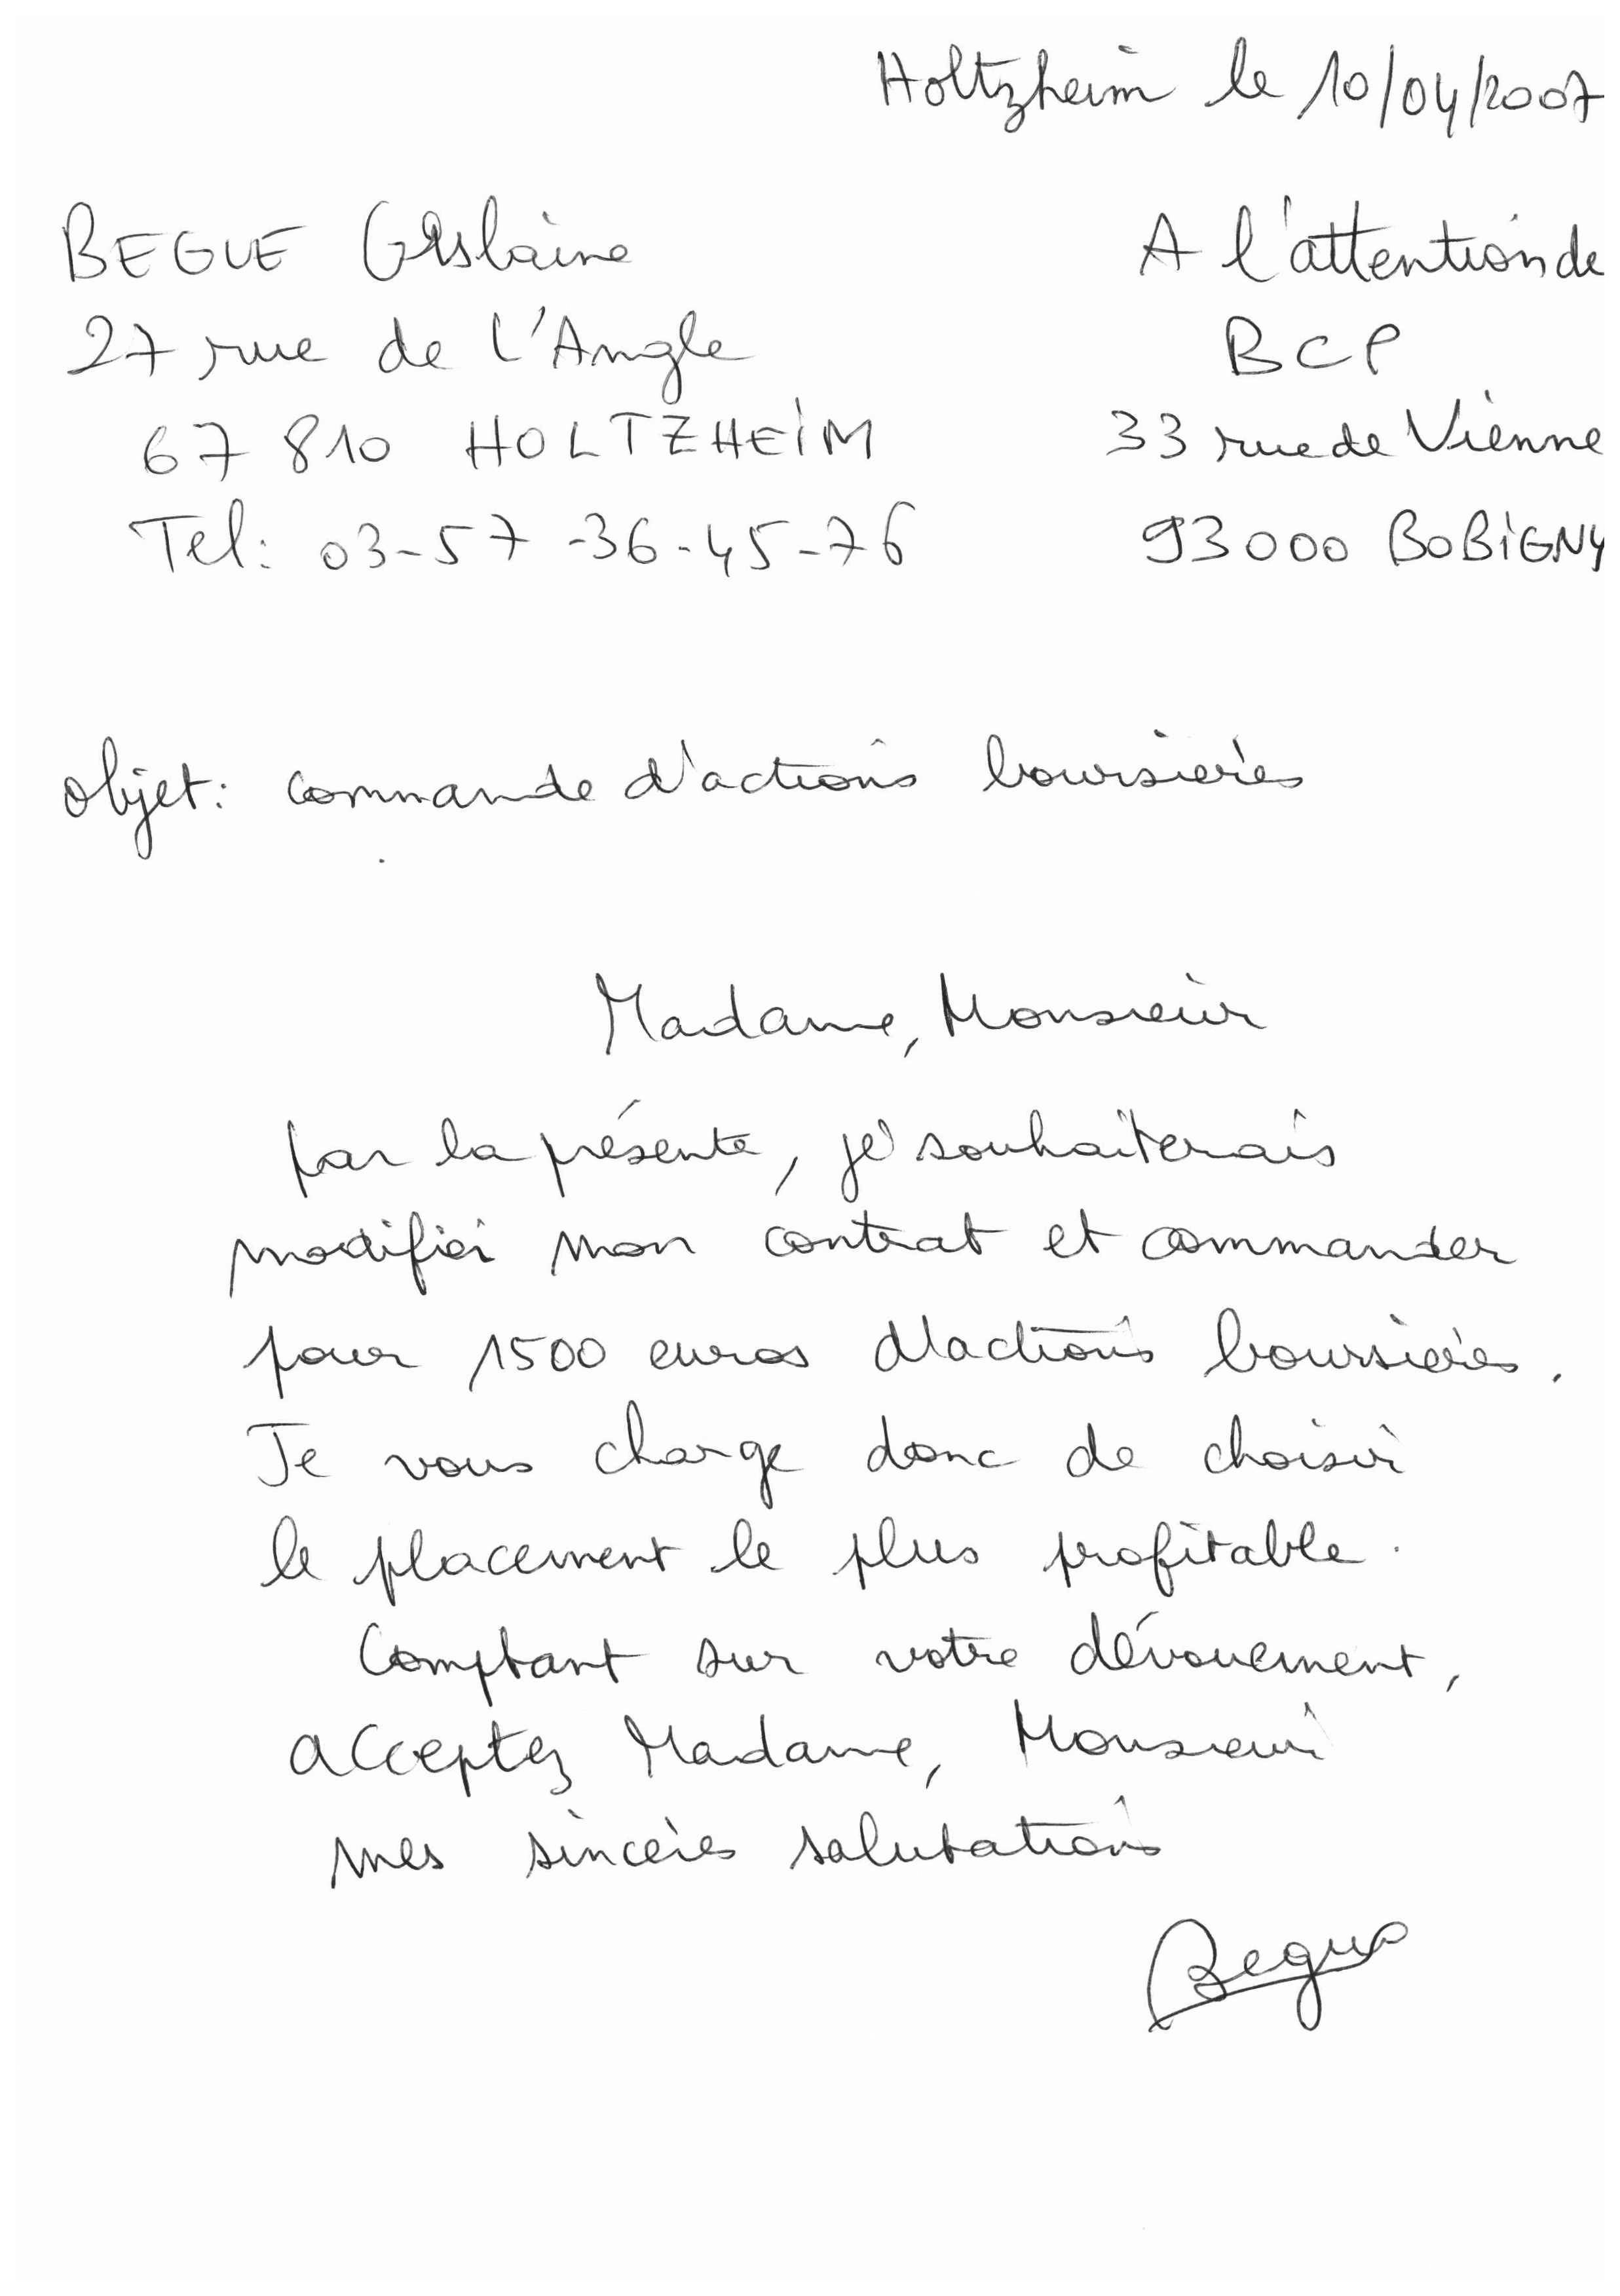 Holtzheim le 10/04/2007
BEGUE Ghislaine
27 rue de l'Angle
67 810 HOLTZHEIM
Tel: 03-57-36-45-76
A l'attention de
BCP
33 rue de Vienne
93000 BOBIGNY
objet: commande d'actions boursières
Madame, Monsieur
par la présente, je souhaiterais
modifier mon contrat et commander
pour 1500 euros d'actions boursières.
Je vous charge donc de choisir
le placement le plus profitable.
Comptant sur votre dévouement,
acceptez Madame, Monsieur
mes sincères salutations
Begue